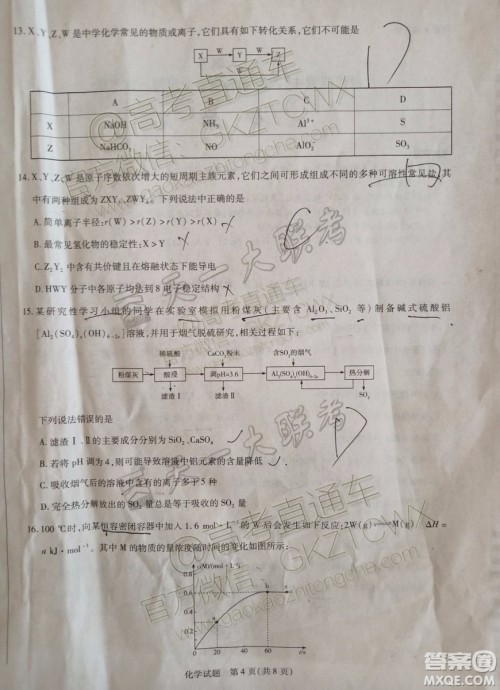 13. X、Y、Z、W 是中学化学常见的物质或离子,它们具有如下转化关系,它们不可能是
X W Y W Z
A B C D
X NaOH NH₃ Al³⁺ S
Z NaHCO₃ NO AlO₂⁻ SO₃
14. X、Y、Z、W 是原子序数依次增大的短周期主族元素,它们之间可形成组成不同的多种可溶性常见盐,其
中有两种组成为 ZXY、ZWY₄。下列说法中正确的是
A. 简单离子半径:r(W)>r(Z)>r(Y)>r(X)
B. 最常见氢化物的稳定性:X>Y
C. Z₂Y₂ 中含有共价键且在熔融状态下能导电
D. HWY 分子中各原子均达到 8 电子稳定结构
15. 某研究性学习小组的同学在实验室模拟用粉煤灰(主要含 Al₂O₃、SiO₂ 等)制备碱式硫酸铝
[Al₂(SO₄)ₓ(OH)₆₋₂ₓ]溶液,并用于烟气脱硫研究,相关过程如下:
稀硫酸 CaCO₃粉末 含SO₂的烟气
粉煤灰 酸浸 调pH=3.6 Al₂(SO₄)ₓ(OH)₆₋₂ₓ 热分解
滤渣Ⅰ 滤渣Ⅱ SO₂
下列说法错误的是
A. 滤渣Ⅰ、Ⅱ的主要成分分别为 SiO₂、CaSO₄
B. 若将 pH 调为 4,则可能导致溶液中铝元素的含量降低
C. 吸收烟气后的溶液中含有的离子多于 5 种
D. 完全热分解放出的 SO₂ 量总是等于吸收的 SO₂ 量
16. 100 ℃时,向某恒容密闭容器中加入 1.6 mol·L⁻¹ 的 W 后会发生如下反应:2W(g)⇌M(g) ΔH=
a kJ·mol⁻¹。其中 M 的物质的量浓度随时间的变化如图所示:
c(M)/mol·L⁻¹
0.8
0.6
0.4
0.2
a
b
0 20 40 60 t/s
化学试题 第 4 页(共 8 页)
@高考直通车
官方微信:GKZTCWX
www.gaokaozhitongche.com
天一大联考
答案圈
MXQE.COM